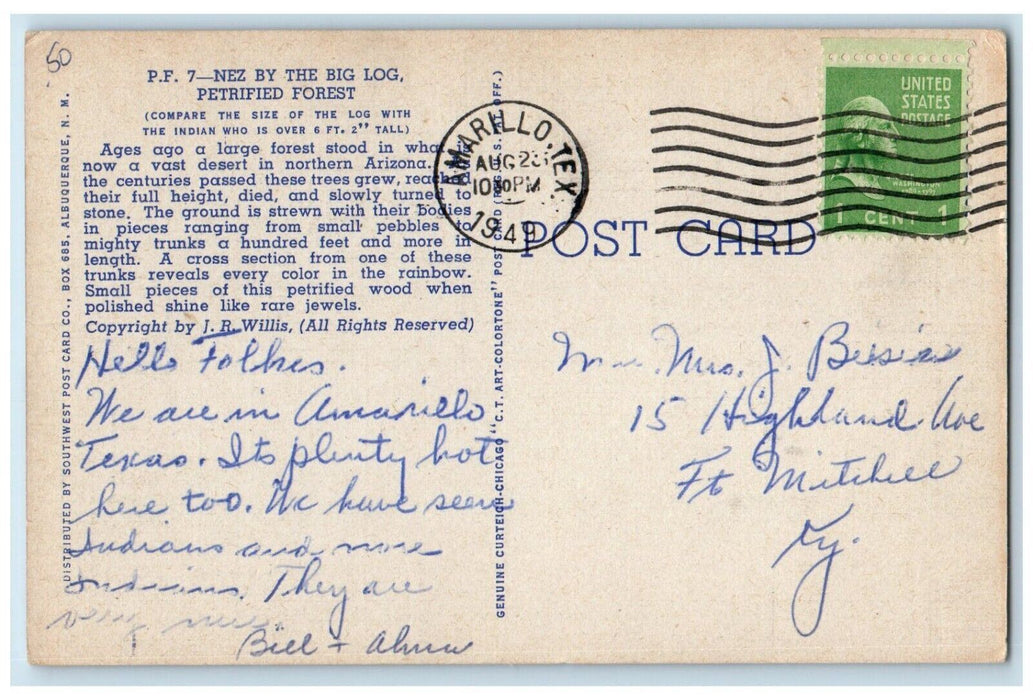 50
P.F. 7—NEZ BY THE BIG LOG,
PETRIFIED FOREST
(COMPARE THE SIZE OF THE LOG WITH
THE INDIAN WHO IS OVER 6 FT. 2" TALL)
Ages ago a large forest stood in what is
now a vast desert in northern Arizona.
the centuries passed these trees grew, reached
their full height, died, and slowly turned to
stone. The ground is strewn with their bodies
in pieces ranging from small pebbles to
mighty trunks a hundred feet and more in
length. A cross section from one of these
trunks reveals every color in the rainbow.
Small pieces of this petrified wood when
polished shine like rare jewels.
Copyright by J. R. Willis, (All Rights Reserved)
Hello Folkes.
We are in Amarillo
Texas. Its plenty hot
here too. We have seen
Indians and more
Indians. They are
very
Bill + Alma
DISTRIBUTED BY SOUTHWEST POST CARD CO., BOX 685, ALBUQUERQUE, N. M.
GENUINE CURTEICH-CHICAGO "C.T. ART-COLORTONE" POST CARD (REG. U.S. PAT. OFF.)
AMARILLO, TEX.
AUG 23
PM
1949
UNITED
STATES
POSTAGE
WASHINGTON
1 CENT 1
POST CARD
Mrs. J.
15 Highland Ave
Ft Mitchell
Ky.